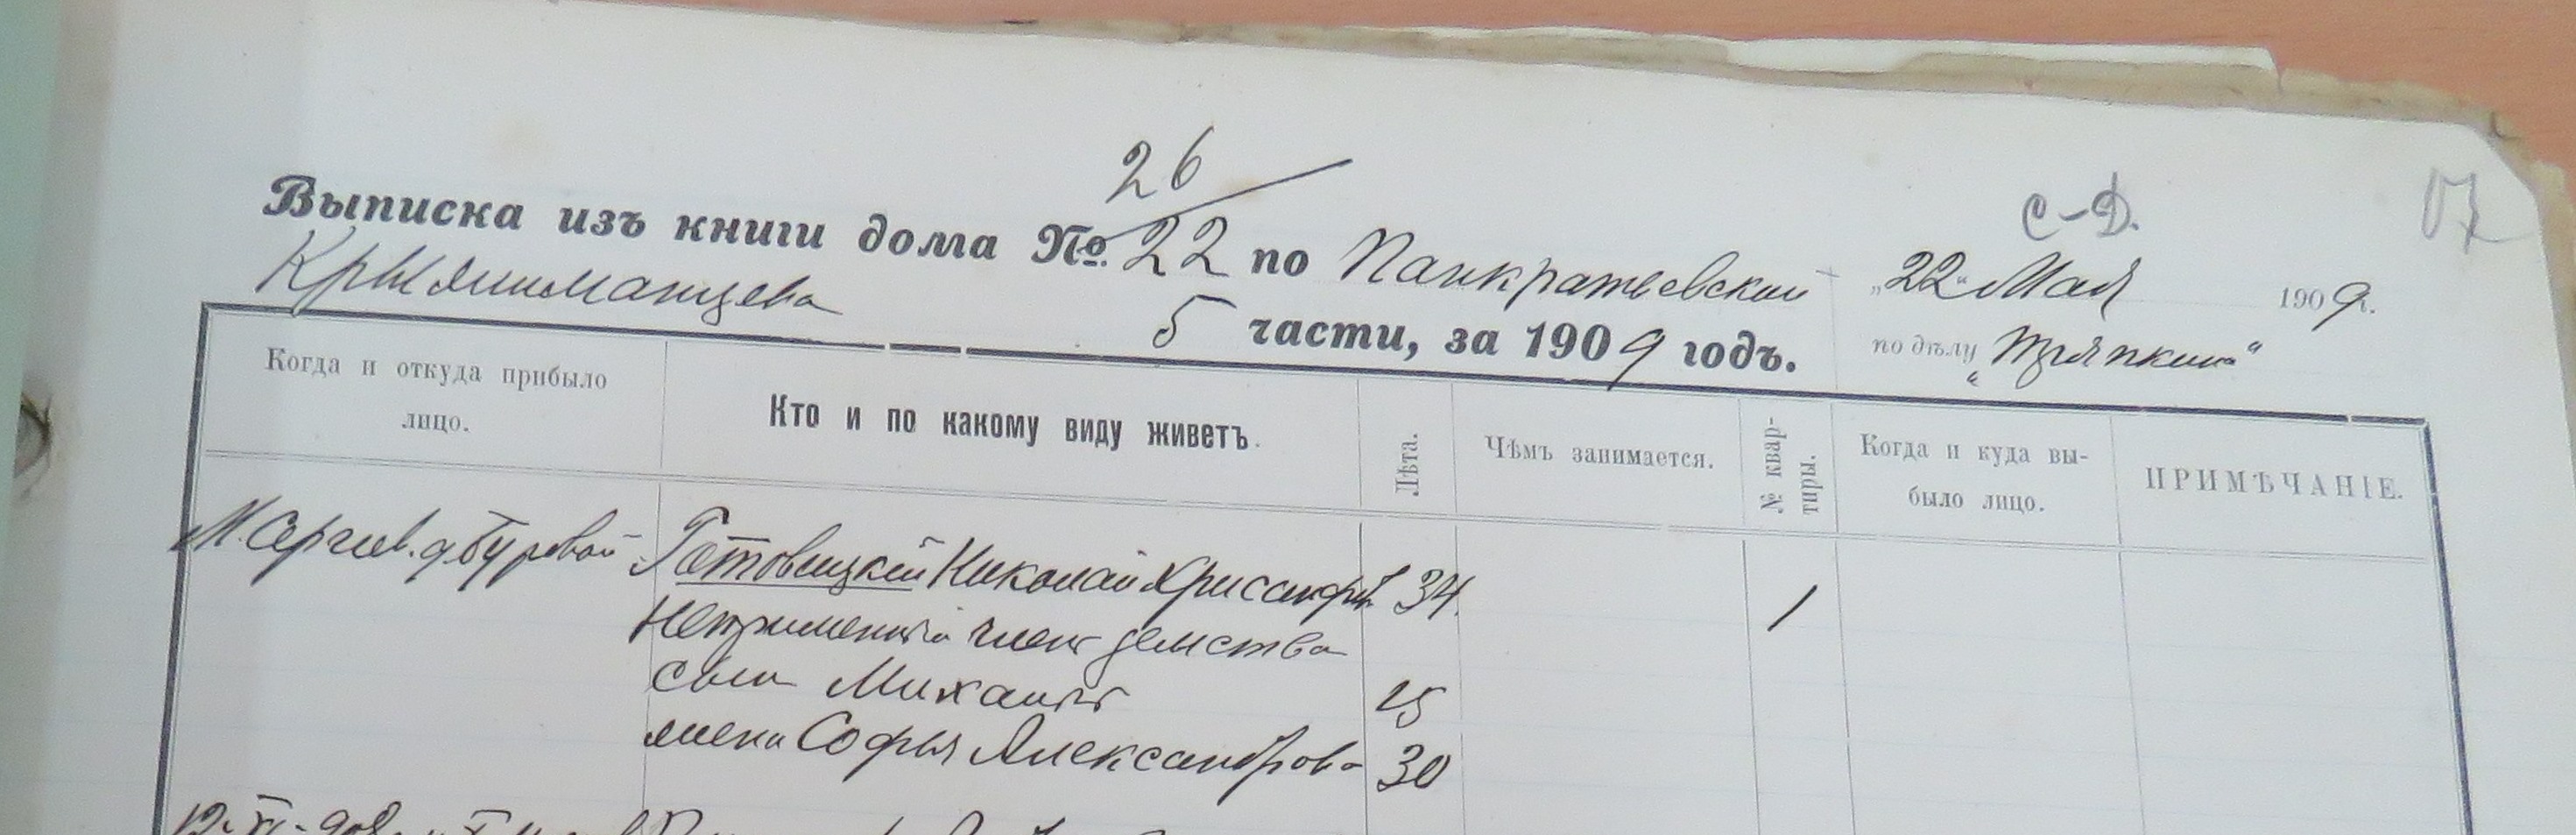 26
С-Д.
Выписка изъ книги дома № 22 по Панкратьевской
"22" Мая 1909 г.
5 части, за 1909 годъ.
по дѣлу "Тряпкина"
Когда и откуда прибыло лицо.
Кто и по какому виду живетъ.
Лѣта.
Чѣмъ занимается.
№ квартиры.
Когда и куда выбыло лицо.
ПРИМѢЧАНІЕ.
М. Сергиев. д. Буровой
Ратовицкій Николай Хрисанфов 34.
1
Непремѣнный член земства
сын Михаилъ 15
жена Софья Александрова 30